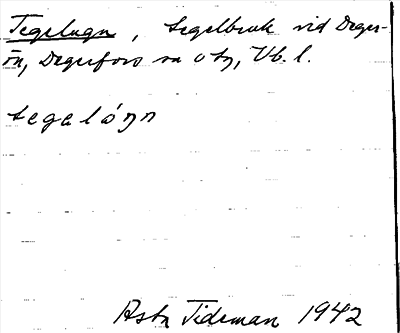 Tegelugn, tegelbruk vid Deger-
ön, Degerfors sn o tg, Vb. l.
tegelóŋn
Asta Tideman 1942